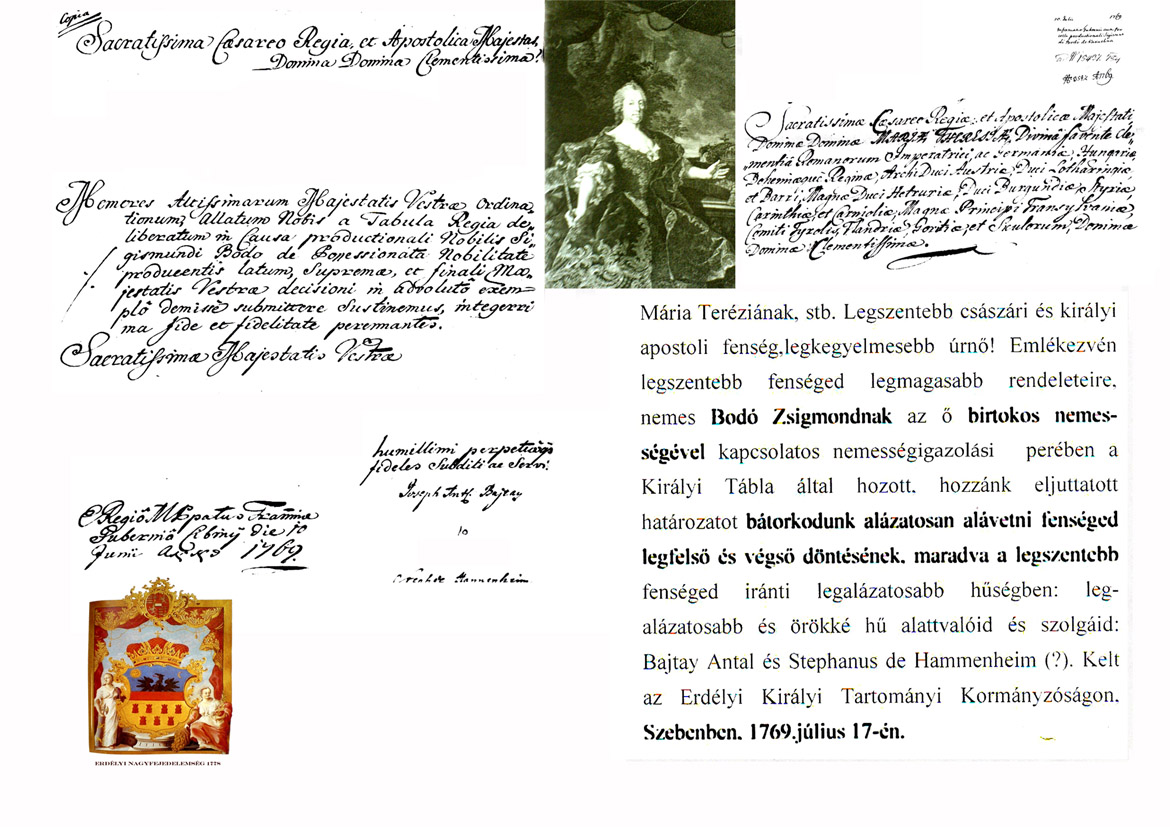 Copia
Sacratissima Cæsareo Regia, et Apostolica Majestas,
Domina Domina Clementissima!
Memores Altissimarum Majestatis Vestræ Ordina,
tionum, Allatum Nobis a Tabula Regia de,
liberatum in Causa productionali Nobilis Si,
gismundi Bodo de Possessionata Nobilitate
producentis latum, Supremæ, et finali Ma,
jestatis Vestræ decisioni in advoluto exem,
plo demisse submittere Sustinemus, integerri
ma fide et fidelitate permanentes.
Sacratissimæ Majestatis Vestræ
humillimi perpetuoqz
fideles Subditi ac Servi.
Joseph Ant. Bajtay
Gubernio Cibinÿ die 10
Juni 1769.
de Hannenheim
ERDÉLYI NAGYFEJEDELEMSÉG 1778
1769
Sacratissimæ Cæsareo Regiæ, et Apostolicæ Majestati
Dominæ Dominæ MARIÆ THERESIÆ, Divina favente Cle,
mentia Romanorum Imperatrici, ac Germaniæ, Hungariæ
Bohemiæque Reginæ, Archi Duci Austriæ, Duci Lotharingiæ
et Barri, Magnæ Duci Hetruriæ, Duci Burgundiæ, Styriæ
Carinthiæ, et Carnioliæ, Magnæ Principi Transylvaniæ,
Comiti Tyrolis, Flandriæ, Goritiæ, et Siculorum, Dominæ
Dominæ Clementissimæ.
Mária Teréziának, stb. Legszentebb császári és királyi
apostoli fenség,legkegyelmesebb úrnő! Emlékezvén
legszentebb fenséged legmagasabb rendeleteire,
nemes Bodó Zsigmondnak az ő birtokos nemes-
ségével kapcsolatos nemességigazolási perében a
Királyi Tábla által hozott, hozzánk eljuttatott
határozatot bátorkodunk alázatosan alávetni fenséged
legfelső és végső döntésének, maradva a legszentebb
fenséged iránti legalázatosabb hűségben: leg-
alázatosabb és örökké hű alattvalóid és szolgáid:
Bajtay Antal és Stephanus de Hammenheim (?). Kelt
az Erdélyi Királyi Tartományi Kormányzóságon,
Szebenben, 1769.július 17-én.